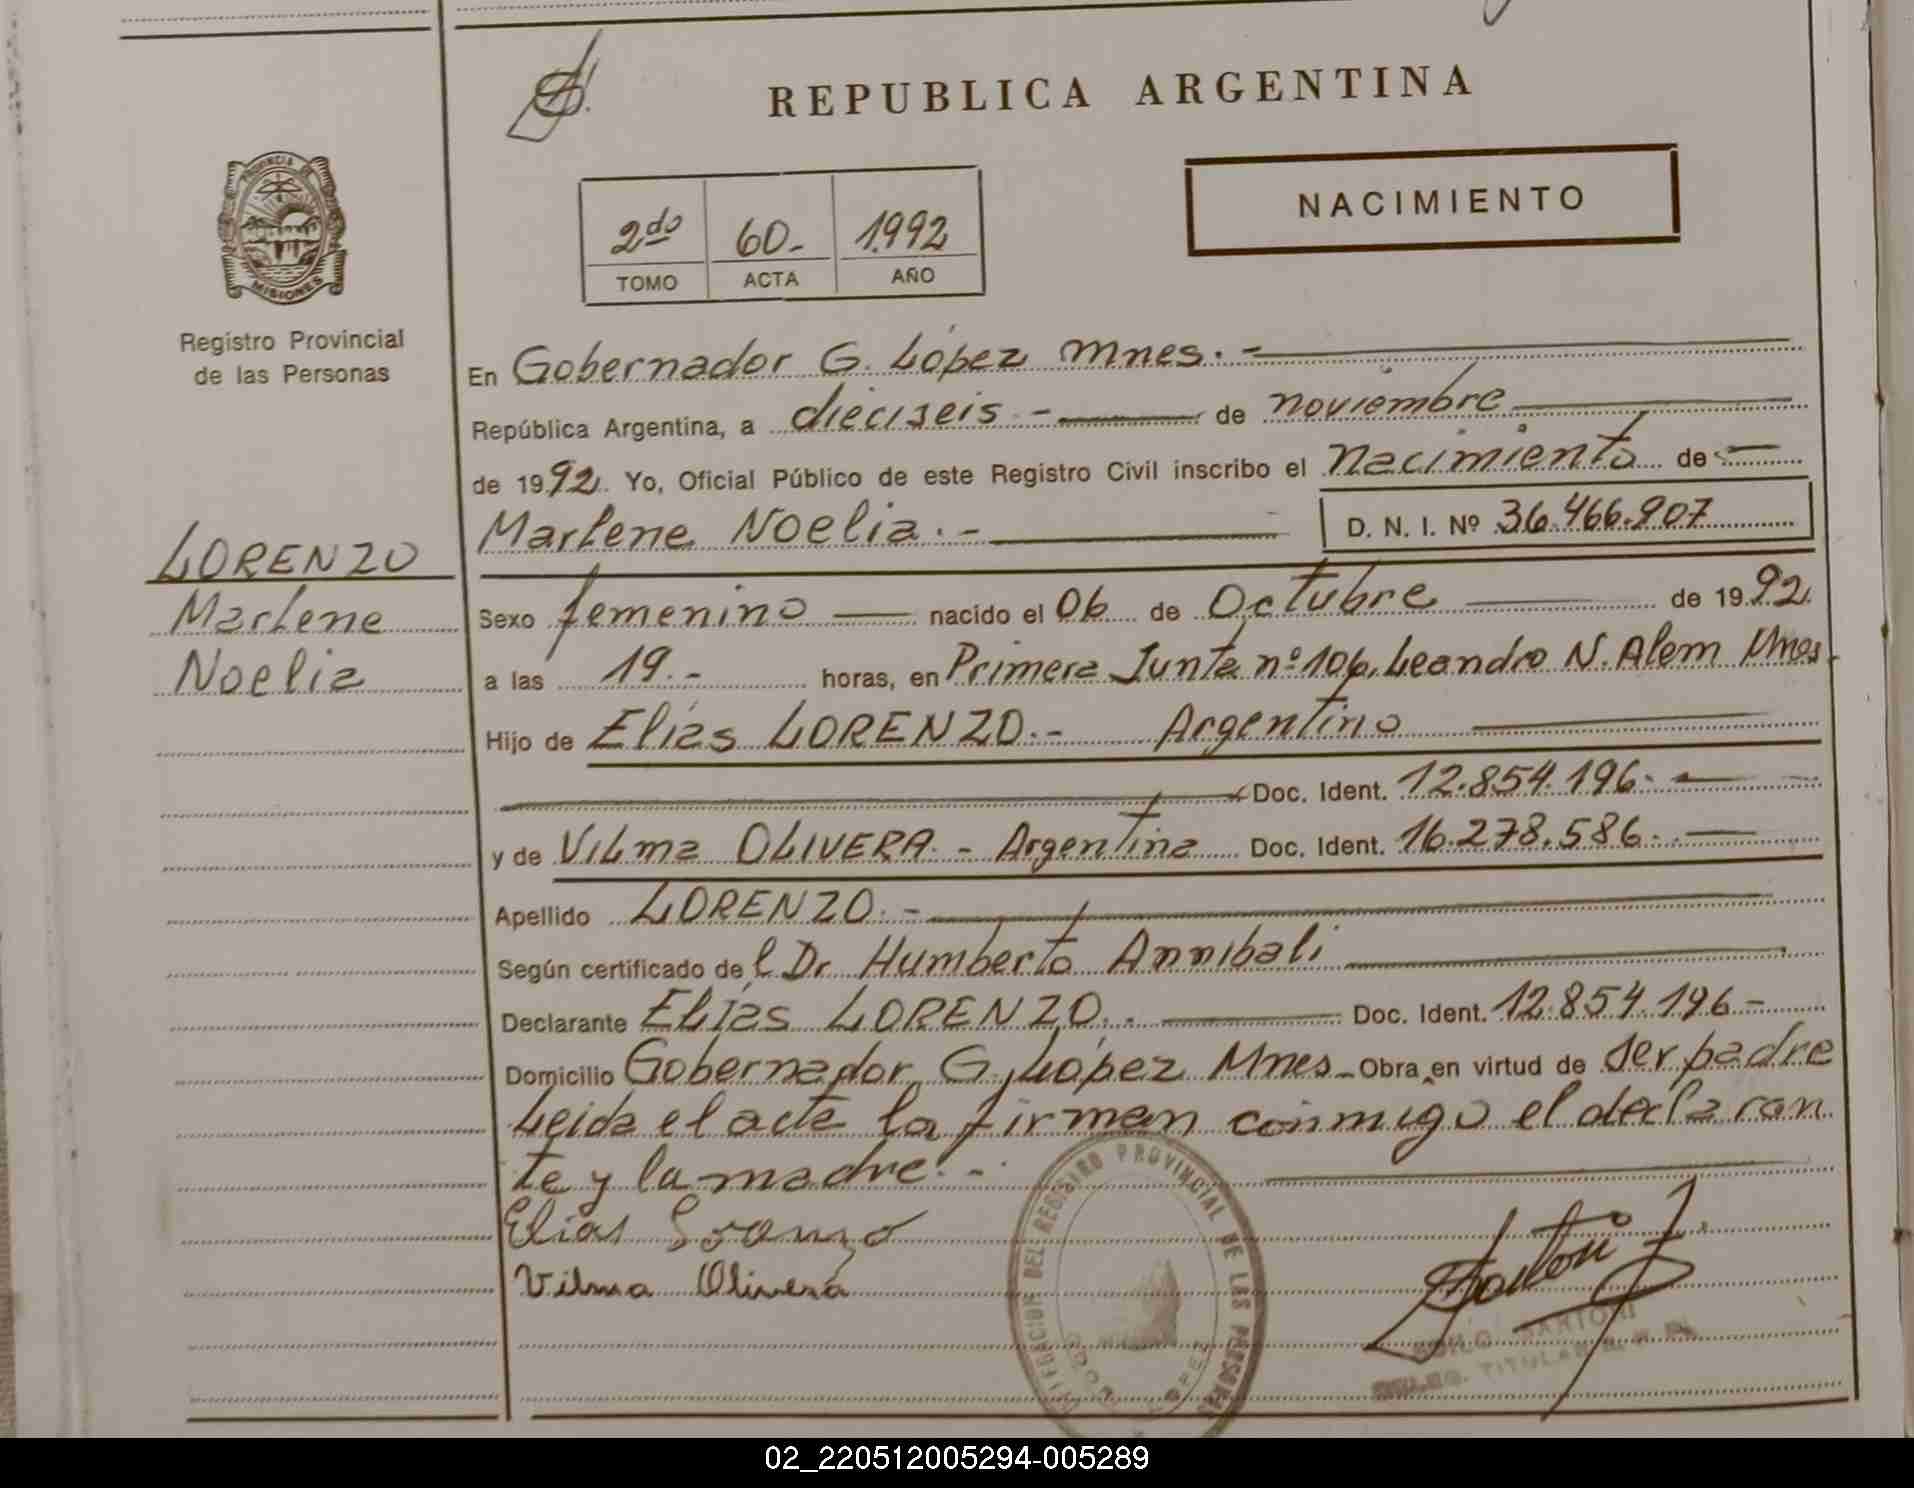 REPUBLICA ARGENTINA
NACIMIENTO
2do 60.- 1.992
TOMO ACTA AÑO
PROVINCIA DE
MISIONES
Registro Provincial
de las Personas
En Gobernador G. López Mnes. -
República Argentina, a dieciseis. - de noviembre
de 1992. Yo, Oficial Público de este Registro Civil inscribo el nacimiento de
Marlene Noelia. -
D. N. I. Nº 36.466.907
LORENZO
Marlene
Noelia
Sexo femenino nacido el 06 de Octubre de 1992.
a las 19. - horas, en Primera Junta nº 106, Leandro N. Alem Mnes.
Hijo de Elías LORENZO. - Argentino
Doc. Ident. 12.854.196. -
y de Vilma OLIVERA. - Argentina Doc. Ident. 16.278.586. -
Apellido LORENZO. -
Según certificado del Dr Humberto Annibali
Declarante Elías LORENZO. - Doc. Ident. 12.854.196 -
Domicilio Gobernador G. López Mnes - Obra en virtud de ser padre
Leida el acta la firman conmigo el declaran
te y la madre. -
Elias Lorenzo
Vilma Olivera
DEL REGISTRO PROVINCIAL DE LAS PERSONAS
SARTORI
TITULAR
02_220512005294-005289